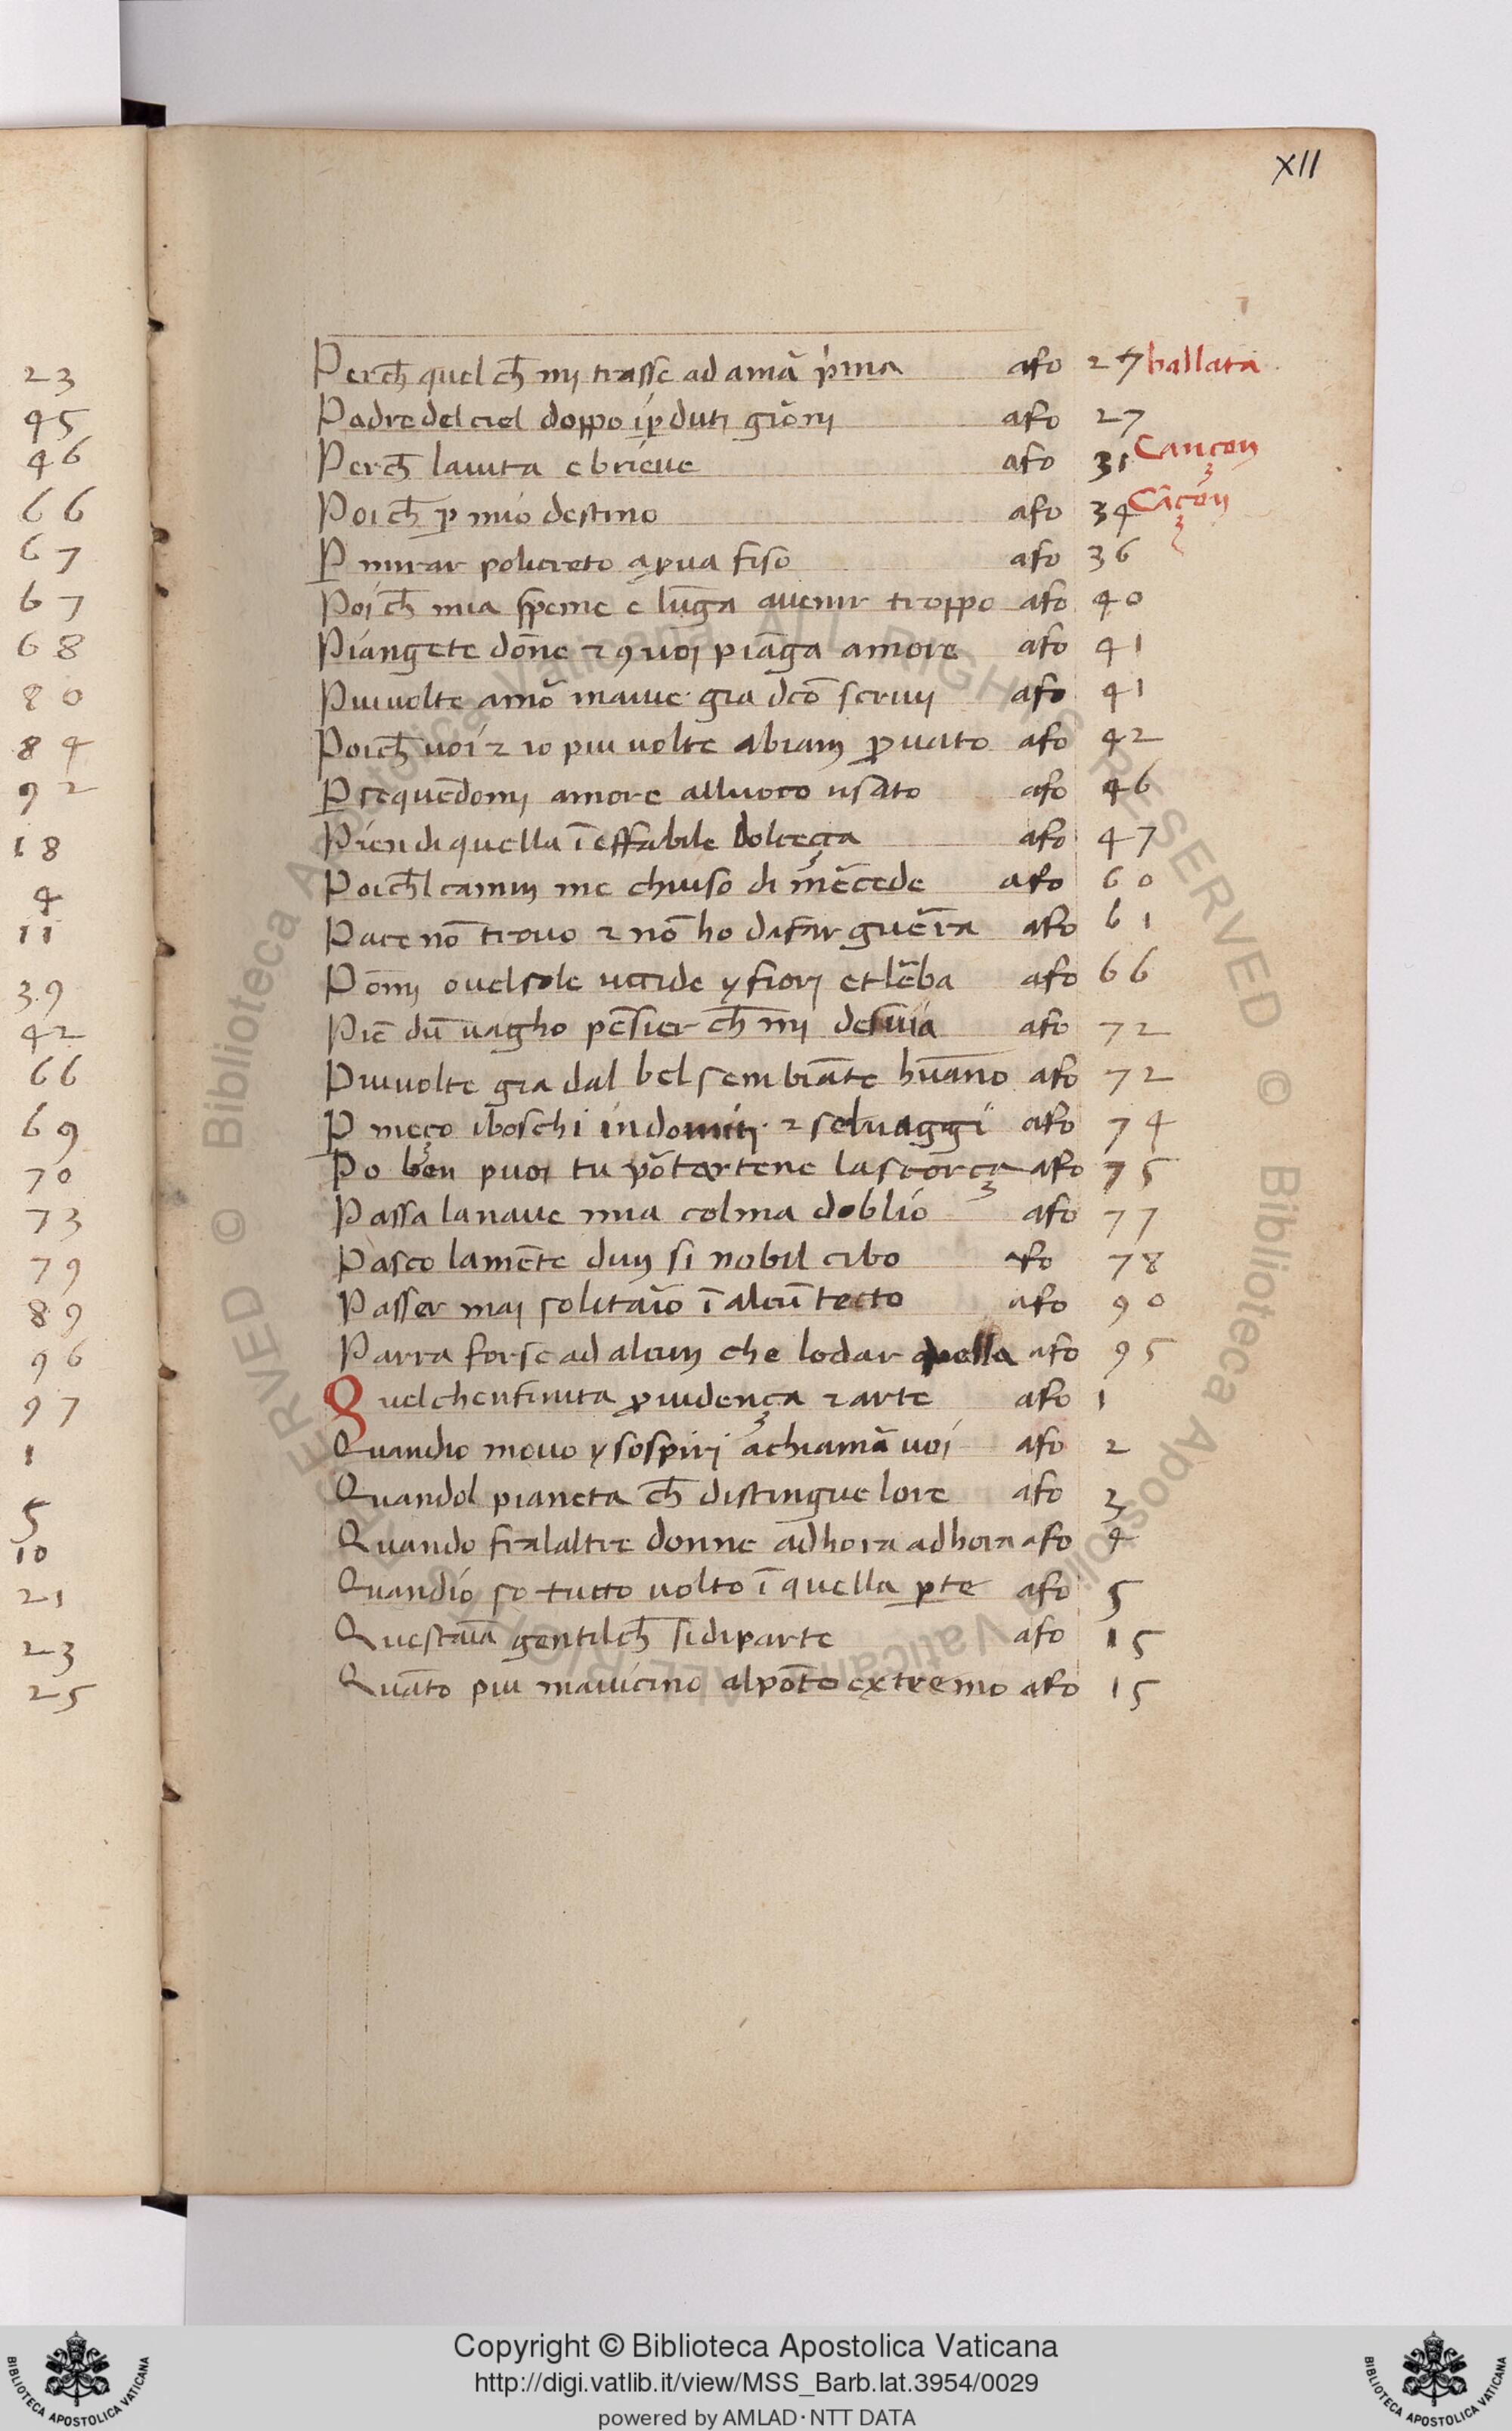 23
45
46
66
67
67
68
80
84
92
18
4
11
39
42
66
69
70
73
79
89
96
97
1
5
10
21
23
25
XII
Perch̄ quel ch̄ mj trasse ad amā pͥma afo 27 ballata
Padre del ciel doppo ip̱duti giōnj afo 27
Perch̄ lauita e brieue afo 31 Cançon
Poi ch̄ p̱ mio destino afo 34 Cāçon
P̱ mirar policreto a pͣua fiso afo 36
Poi ch̄ mia speme e lūga auenir troppo afo 40
Piangete dōne ⁊ ꝯ voi piāga amore afo 41
Piuuolte amō maiue gia dcō scriuj afo 41
Poich̄ uoi ⁊ io piu uolte abiam ꝓuato afo 42
P̱sequēdomj amore alluoco usato afo 46
Pien di quella ī effabile dolceça afo 47
Poich̄l camin me chiuso di m̄ecede afo 60
Pace nō trouo ⁊ nō ho dafar guēra afo 61
Pōmj ouelsole uccide y fiorj et lēba afo 66
Piē dū uagho pēsier ch̄ mj desuia afo 72
Piuuolte gia dal bel sembiāte hūano afo 72
P̱ meço iboschi indomiti ⁊ seluaggi afo 74
Po ben puoi tu pōtartene la scorça afo 75
Passa lanaue mia colma doblio afo 77
Pasco lamēte dun si nobil cibo afo 78
Passer maj solitaio ī alcū tecto afo 90
Parra forse ad alcun che lodar quella afo 95
Quelchenfinita ꝓuidença ⁊ arte afo 1
Quandio mouo y sospirj achiamā uoi afo 2
Quandol pianeta ch̄ distingue lore afo 3
Quando fralaltre donne adhora adhora afo 4
Quandio so tutto uolto ī quella p̱te afo 5
Questaīa gentilch̄ sidiparte afo 15
Quāto piu mauicino alpōto extremo afo 15
Copyright © Biblioteca Apostolica Vaticana
http://digi.vatlib.it/view/MSS_Barb.lat.3954/0029
powered by AMLAD·NTT DATA
BIBLIOTECA APOSTOLICA VATICANA
BIBLIOTECA APOSTOLICA VATICANA
© Biblioteca Apostolica Vaticana ALL RIGHTS RESERVED © Biblioteca Apostolica Vaticana ALL RIGHTS RESERVED